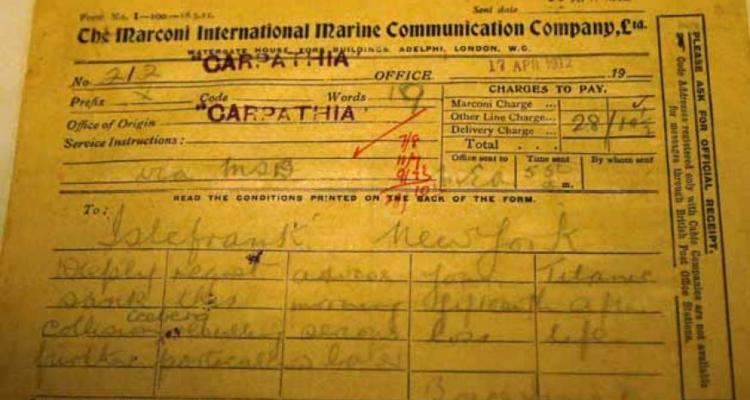 Form No. 1—100—18.3.12.
Sent date
The Marconi International Marine Communication Company, Ltd.
WATERGATE HOUSE, YORK BUILDINGS, ADELPHI, LONDON, W.C.
No. 212 "CARPATHIA" OFFICE 17 APR 1912 19
Prefix X Code Words 19
CHARGES TO PAY.
Office of Origin "CARPATHIA"
Marconi Charge ...
Other Line Charge...
Delivery Charge ...
Total . . .
Service Instructions:
via MSB
Office sent to Time sent By whom sent
m.
READ THE CONDITIONS PRINTED ON THE BACK OF THE FORM.
To: Islefrank New York
Deeply regret advise you Titanic
sank this morning fifteenth after
collision iceberg resulting serious loss life
further particulars later
PLEASE ASK FOR OFFICIAL RECEIPT.
Code Addresses registered only with Cable Companies are not available
for messages through British Post Office Stations.